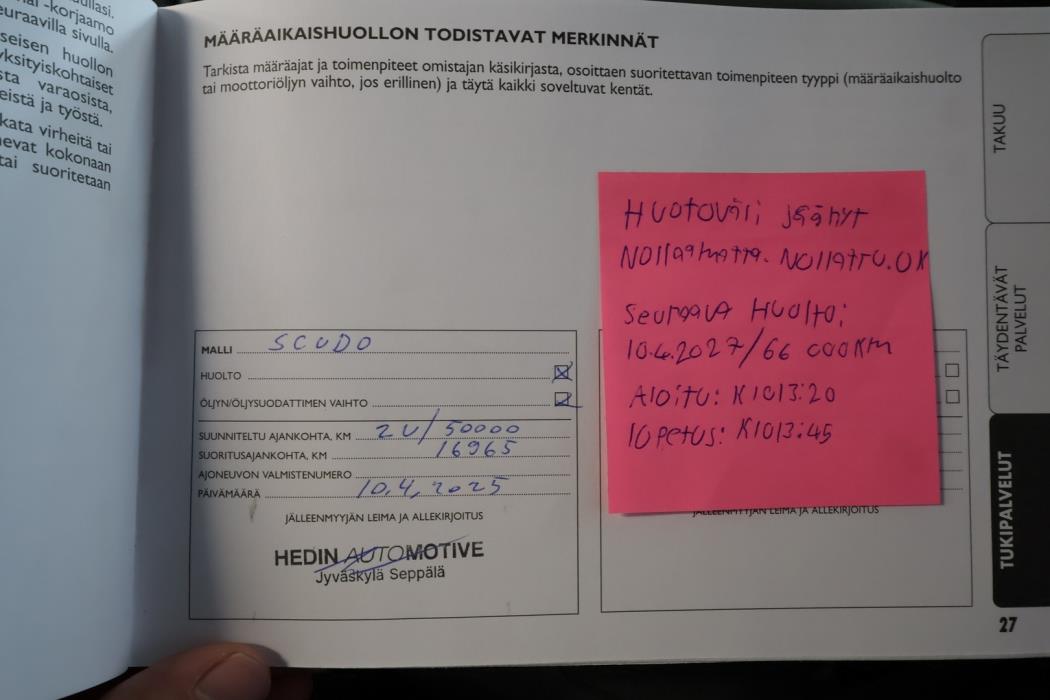 ullasi.
-korjaamo
euraavilla sivulla.
seisen huollon
yksityiskohtaiset
varaosista,
eistä ja työstä.
kata virheitä tai
nevat kokonaan
tai suoritetaan
MÄÄRÄAIKAISHUOLLON TODISTAVAT MERKINNÄT
Tarkista määräajat ja toimenpiteet omistajan käsikirjasta, osoittaen suoritettavan toimenpiteen tyyppi (määräaikaishuolto
tai moottoriöljyn vaihto, jos erillinen) ja täytä kaikki soveltuvat kentät.
MALLI SCUDO
HUOLTO
ÖLJYN/ÖLJYSUODATTIMEN VAIHTO
SUUNNITELTU AJANKOHTA, KM 2V/50000
SUORITUSAJANKOHTA, KM 16965
AJONEUVON VALMISTENUMERO
PÄIVÄMÄÄRÄ 10.4.2025
JÄLLEENMYYJÄN LEIMA JA ALLEKIRJOITUS
HEDIN AUTOMOTIVE
Jyväskylä Seppälä
HUOTOVäli jäänyt
NOllaamatta. NOllattu. OK
Seuraava HUOlto:
10.4.2027/66 000Km
AlOitu: K1013:20
lOpetus: K1013:45
JÄLLEENMYYJÄN LEIMA JA ALLEKIRJOITUS
TAKUU
TÄYDENTÄVÄT
PALVELUT
TUKIPALVELUT
27